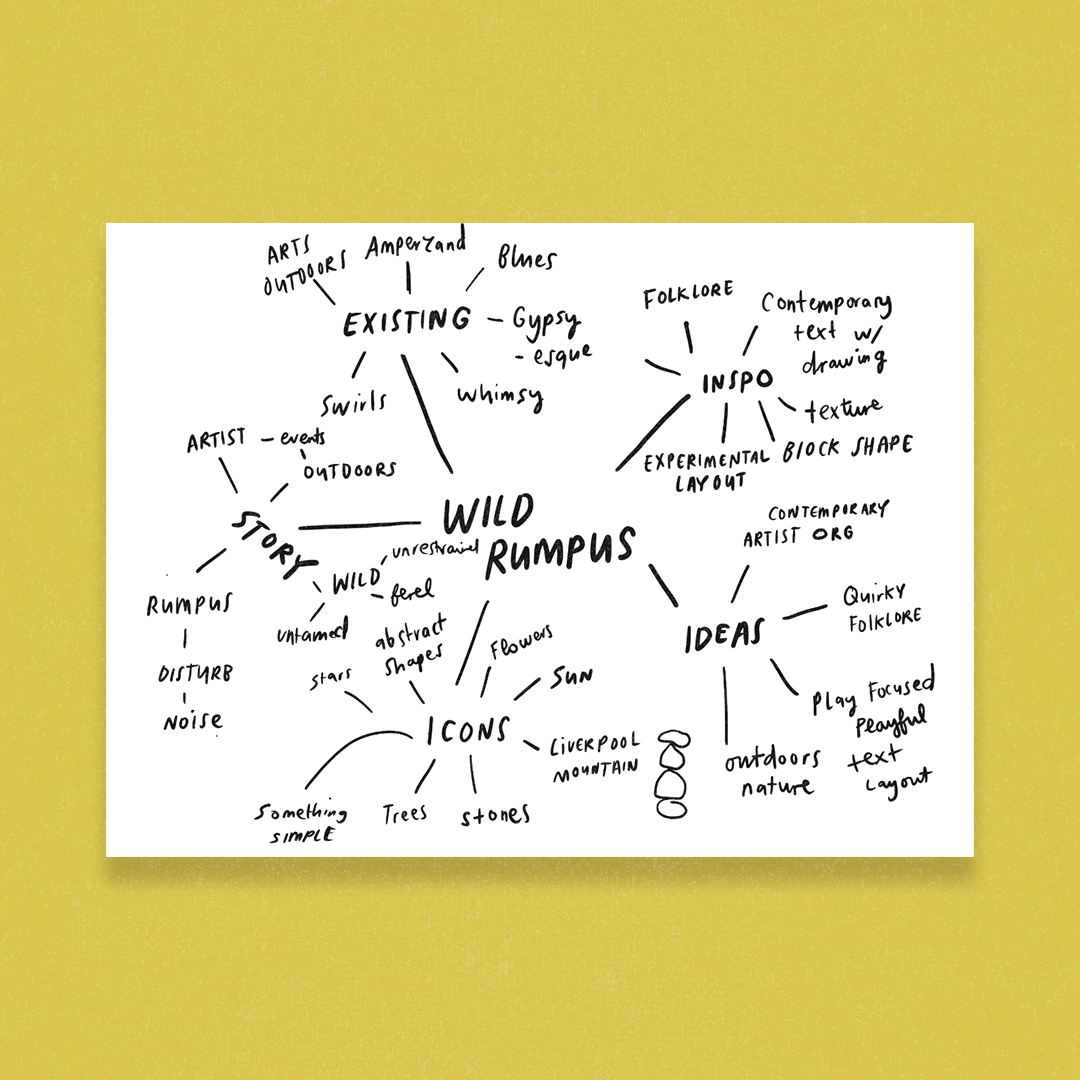 ARTS
OUTDOORS
Amperzand
Blues
EXISTING
Gypsy
- esque
Swirls
whimsy
FOLKLORE
Contemporary
text w/
drawing
INSPO
texture
BLOCK SHAPE
EXPERIMENTAL
LAYOUT
ARTIST - events
OUTDOORS
STORY
WILD
unrestrained
ferel
untamed
RUMPUS
DISTURB
NOISE
WILD
RUMPUS
CONTEMPORARY
ARTIST ORG
IDEAS
Quirky
FOLKLORE
Play Focused
Playful
text
Layout
outdoors
nature
stars
abstract
shapes
Flowers
SUN
ICONS
LIVERPOOL
MOUNTAIN
Something
SIMPLE
Trees
stones